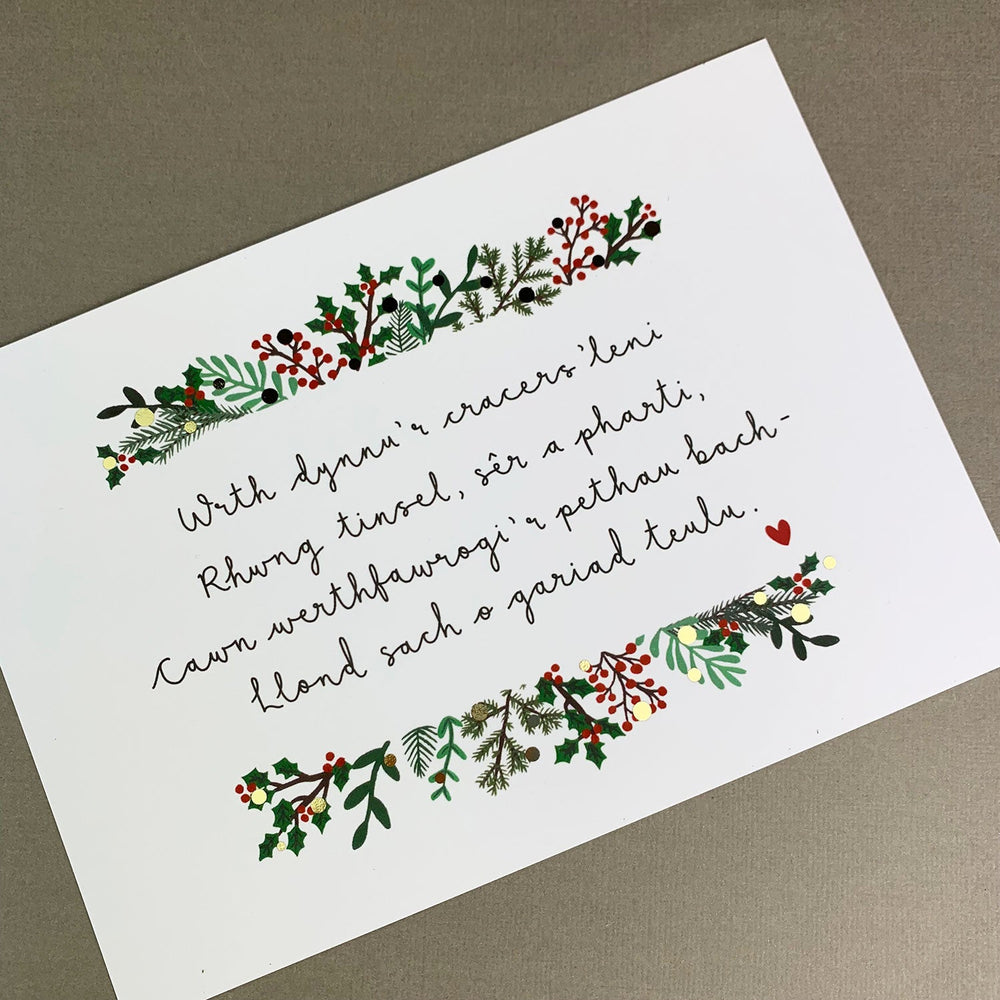 Wrth dynnu'r cracers 'leni
Rhwng tinsel, sêr a pharti,
Cawn werthfawrogi'r pethau bach-
Llond sach o gariad teulu.